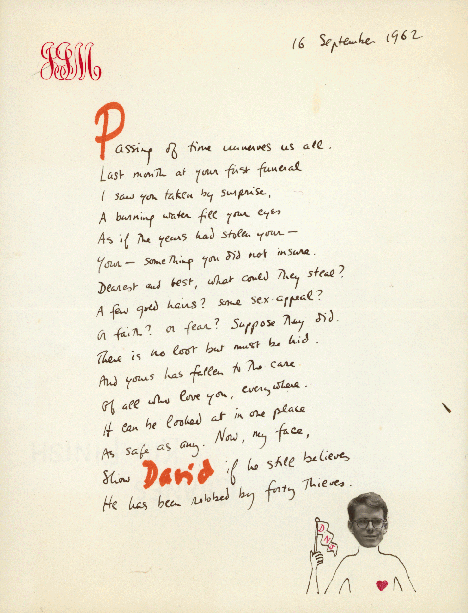 16 September 1962
JIM
Passing of time unnerves us all.
Last month at your first funeral
I saw you taken by surprise,
A burning water fill your eyes
As if the years had stolen your —
Your — something you did not insure.
Dearest and best, what could they steal?
A few gold hairs? some sex-appeal?
Or faith? or fear? Suppose they did.
There is no loot but must be hid.
And yours has fallen to the care
Of all who love you, everywhere.
It can be looked at in one place
As safe as any. Now, my face,
Show David if he still believes
He has been robbed by forty thieves.